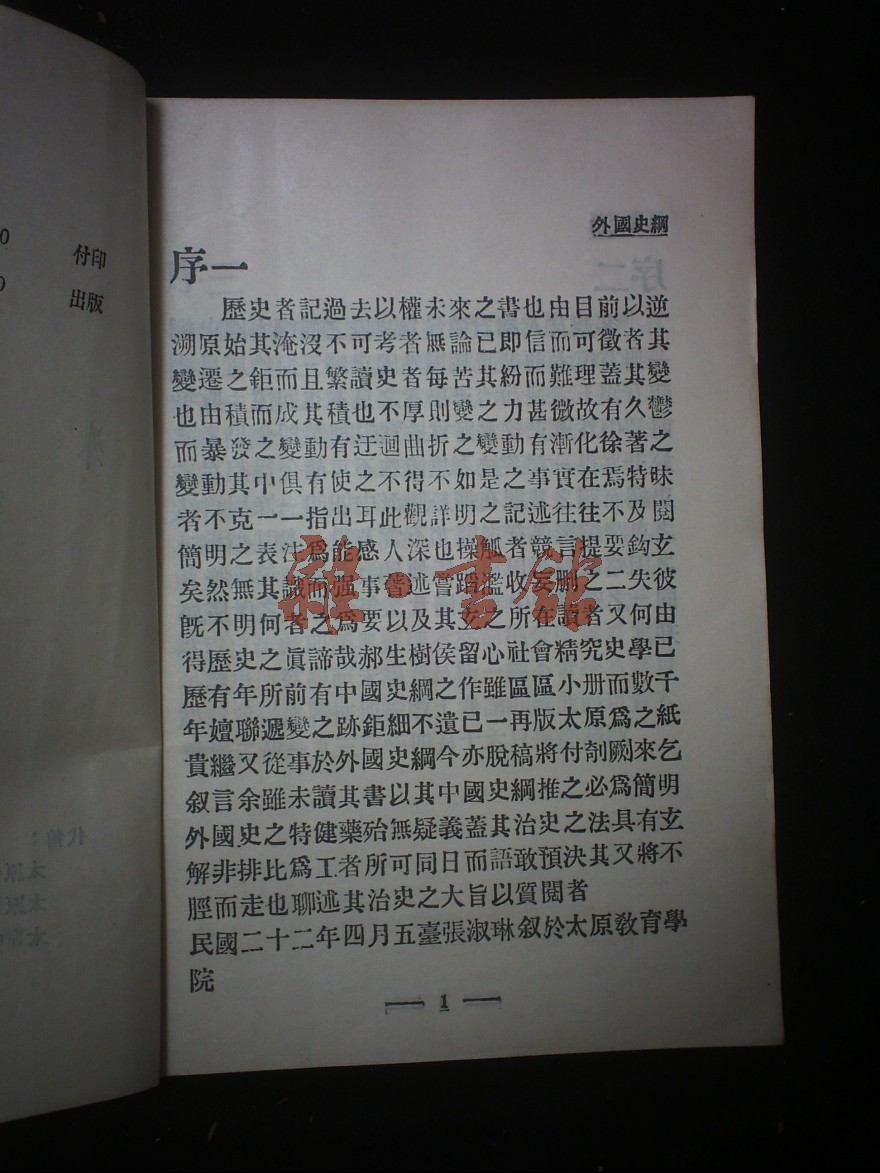 付印
出版
外國史綱
序一
歷史者記過去以權未來之書也由目前以逆
溯原始其淹沒不可考者無論已即信而可徵者其
變遷之鉅而且繁讀史者每苦其紛而難理蓋其變
也由積而成其積也不厚則變之力甚微故有久鬱
而暴發之變動有迂迴曲折之變動有漸化徐著之
變動其中俱有使之不得不如是之事實在焉特昧
者不克一一指出耳此觀詳明之記述往往不及閱
簡明之表注爲能感人深也操觚者競言提要鈎玄
矣然無其識而强事著述嘗蹈濫收妄删之二失彼
旣不明何者之爲要以及其玄之所在讀者又何由
得歷史之眞諦哉郝生樹侯留心社會精究史學已
歷有年所前有中國史綱之作雖區區小册而數千
年嬗聯遞變之跡鉅細不遺已一再版太原爲之紙
貴繼又從事於外國史綱今亦脫稿將付剞劂來乞
叙言余雖未讀其書以其中國史綱推之必爲簡明
外國史之特健藥殆無疑義蓋其治史之法具有玄
解非排比爲工者所可同日而語敢預決其又將不
脛而走也聊述其治史之大旨以質閱者
民國二十二年四月五臺張淑琳叙於太原敎育學
院
1
雜·書館